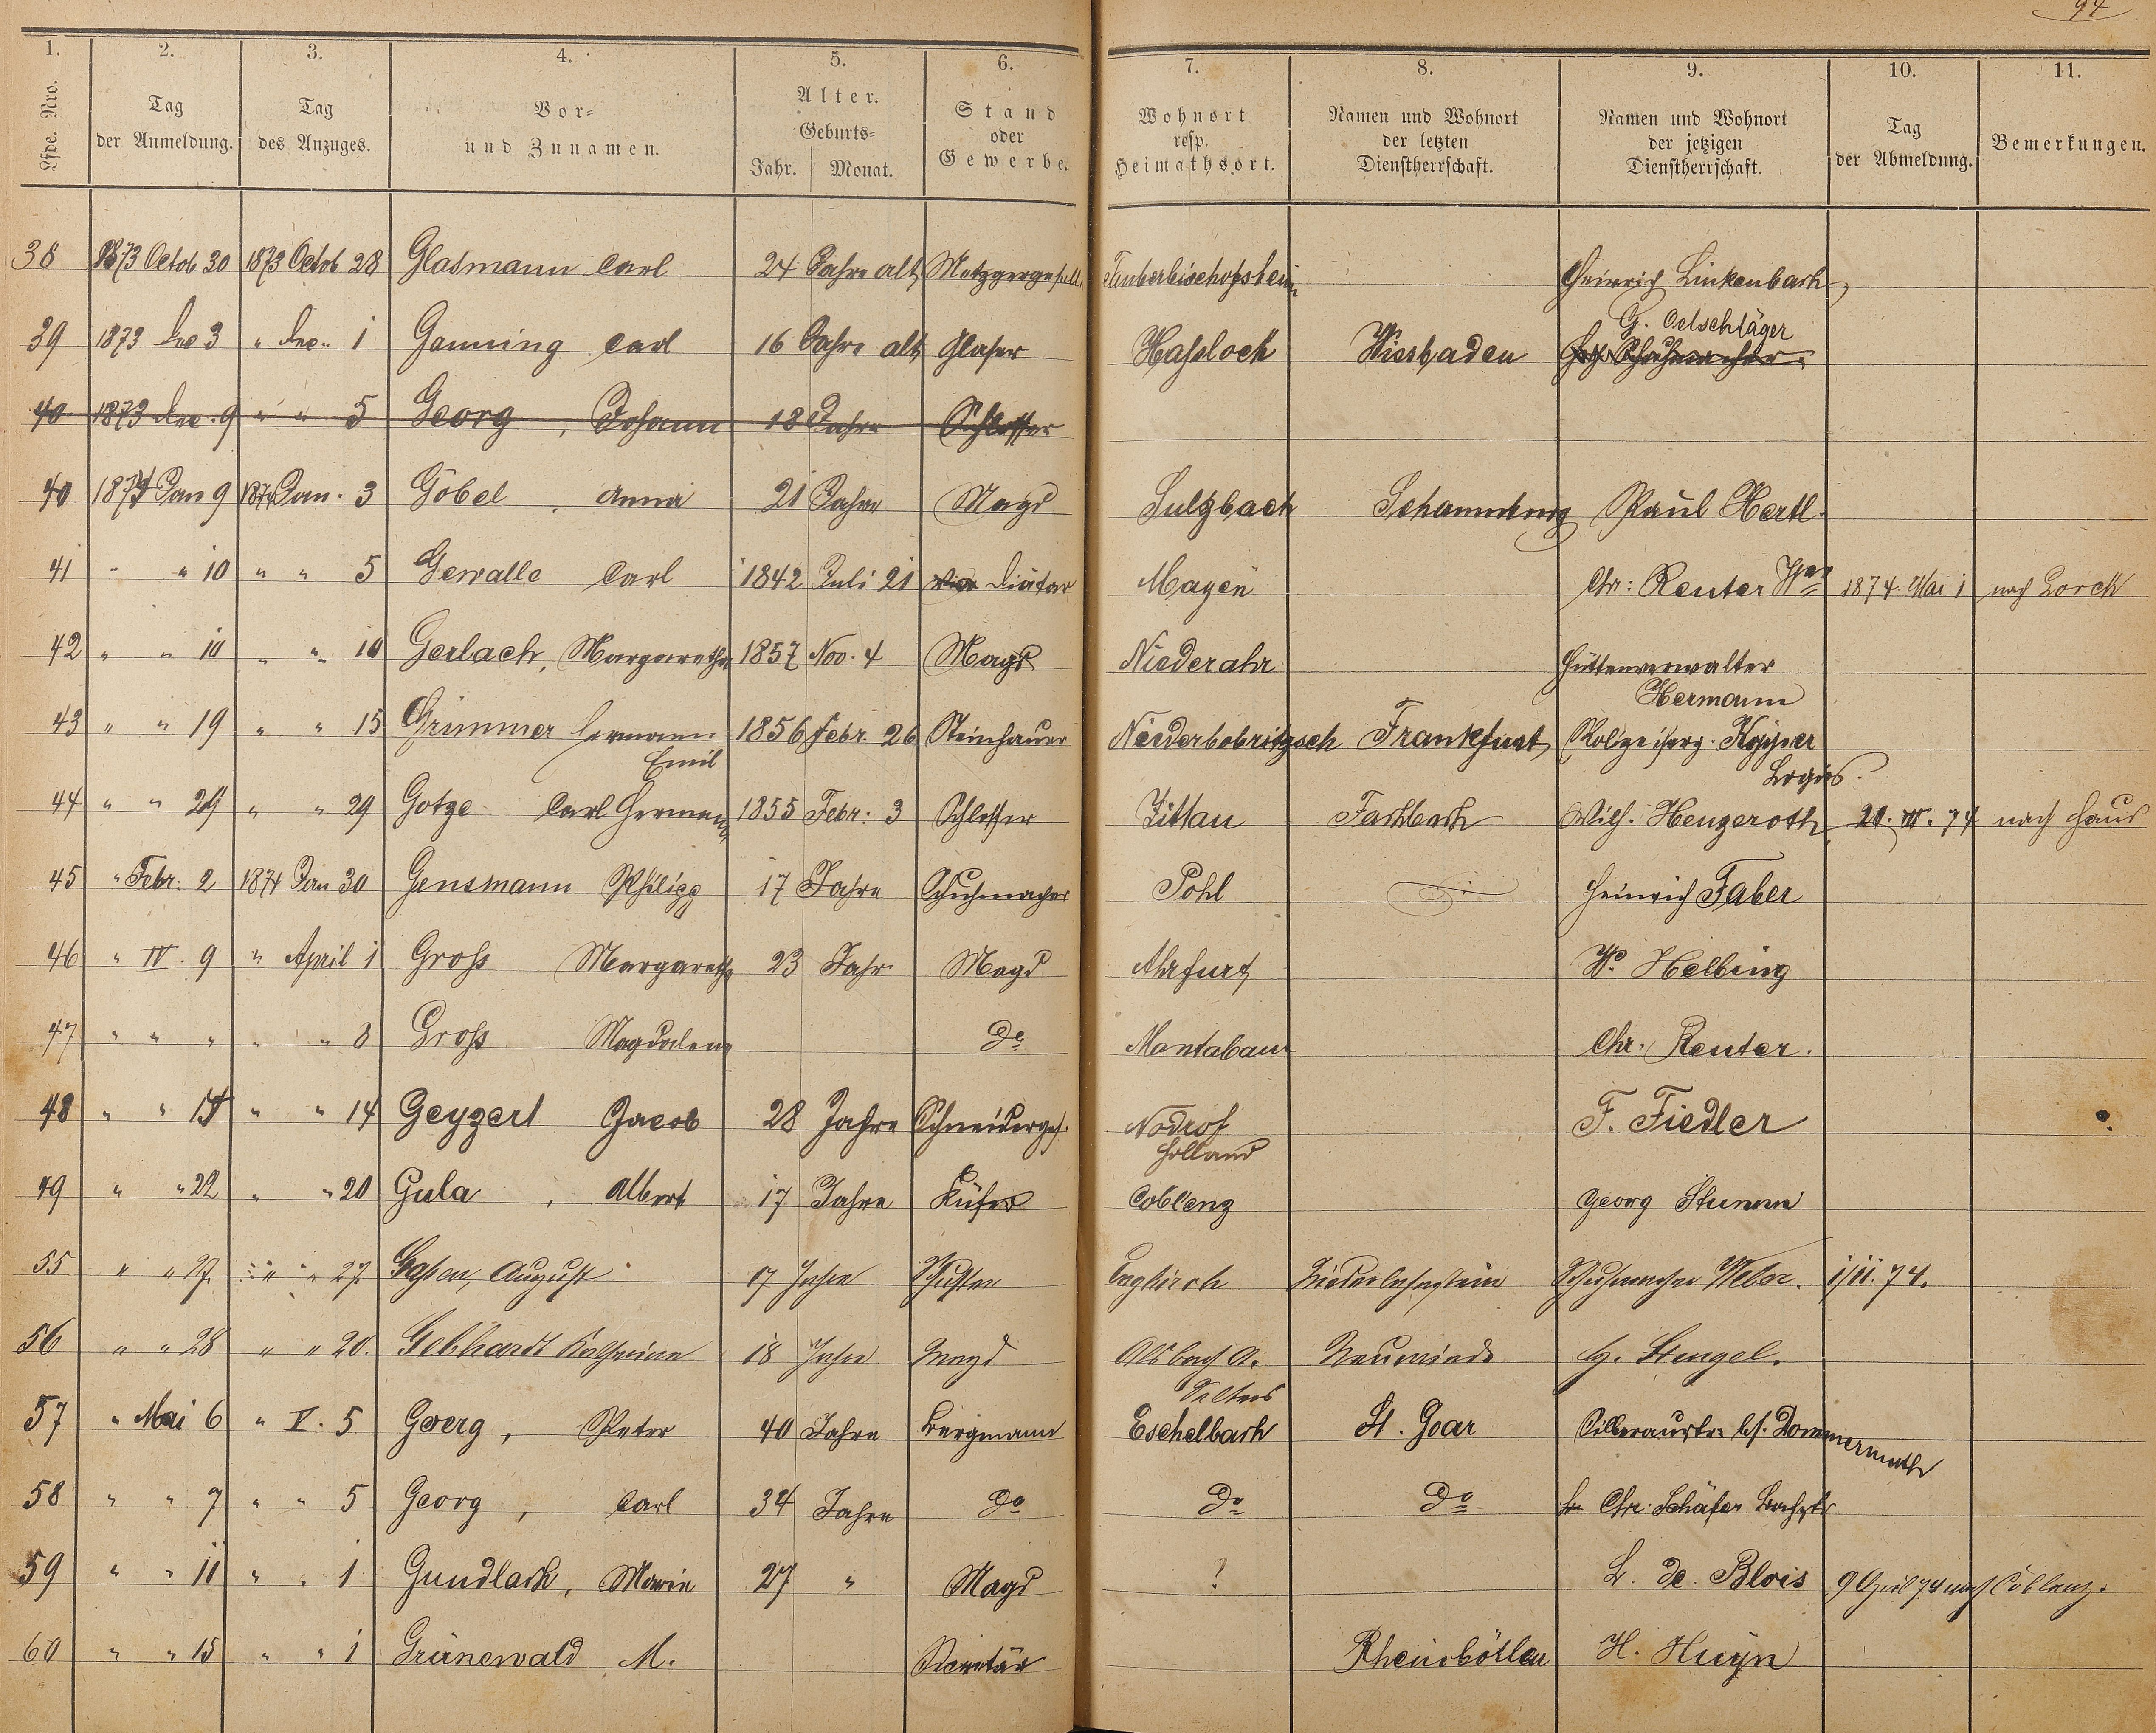 94
1. 2. 3. 4. 5. 6. 7. 8. 9. 10. 11.
Lfde. Nro. Tag der Anmeldung. Tag des Anzuges. Vor- und Zunamen. Alter. Geburts- Jahr. Monat. Stand oder Gewerbe. Wohnort resp. Heimathsort. Namen und Wohnort der letzten Dienstherrschaft. Namen und Wohnort der jetzigen Dienstherrschaft. Tag der Abmeldung. Bemerkungen.
38 1873 Octob 30 1873 Octob 28 Glasmann Carl 24 Jahre alt Metzgergeselle Tauberbischofsheim Heinrich Linkenbach
39 1873 Dec 3 " Dec. 1 Ganning Carl 16 Jahre alt Glaser Haßloch Wiesbaden G. Oelschläger
40 1873 Dec. 9 " " 5 Georg, Johann 18 Jahre Schlosser
40 1874 Jan 9 1874 Jan. 3 Göbel, Anna 21 Jahre Magd Sulzbach Paul Hertl.
41 " " 10 " " 5 Gewalle Carl 1842 Juli 21 Diätar Mayen Chr: Reuter 1874. Mai 1 nach Lorch
42 " " 10 " " 10 Gerlach, Margaretha 1857 Nov. 4 Magd Niederahr Hüttenverwalter Hermann
43 " " 19 " " 15 Grimmer Hermann Emil 1856 Febr. 26 Steinhauer Niederbobritzsch Frankfurt Polizeiserg. Logis.
44 " " 29 " " 29 Gotze Carl Hermann 1855 Febr: 3 Schlosser Zittau Fachbach Wilh. Hengeroth 21. III. 74 nach Haus
45 " Febr. 2 1874 Jan 30 Gensmann Philipp 17 Jahre Schuhmacher Pohl Heinrich Faber
46 " IV. 9 " April 1 Groß Margaretha 23 Jahr Magd Ahrfurt W. Helbing
47 " " " " " 8 Groß Magdalena do Montabaur Chr. Reuter.
48 " " 14 " " 14 Geyzerl Jacob 28 Jahre Schneiderges. Nodrof Holland F. Fiedler
49 " " 22 " " 20 Gula, Albert 17 Jahre Küfer Coblenz Georg Stumm
55 " " 27. " " 27. Gaßen, August 17 Jahre Schuster Enghirch Niederlahnstein Schuhmacher Weber. 1/11. 74.
56 " " 28 " " 20. Gebhardt Katharina 18 Jahre Magd Alsbach A. Selters Neuwied H. Stengel.
57 " Mai 6 " V. 5 Goerg, Peter 40 Jahre Bergmann Eschelbach St. Goar Silberaustr. bf. Dommermuth
58 " " 7 " " 5 Georg, Carl 34 Jahre do do do Chr. Schäfer Bachstr
59 " " 11 " " 1 Gundlach, Maria 27 " Magd ? L. de Blois 9 April 74 nach Coblenz.
60 " " 15 " " 1 Grünewald, M. Secretär Rheinböllen H. Huyn